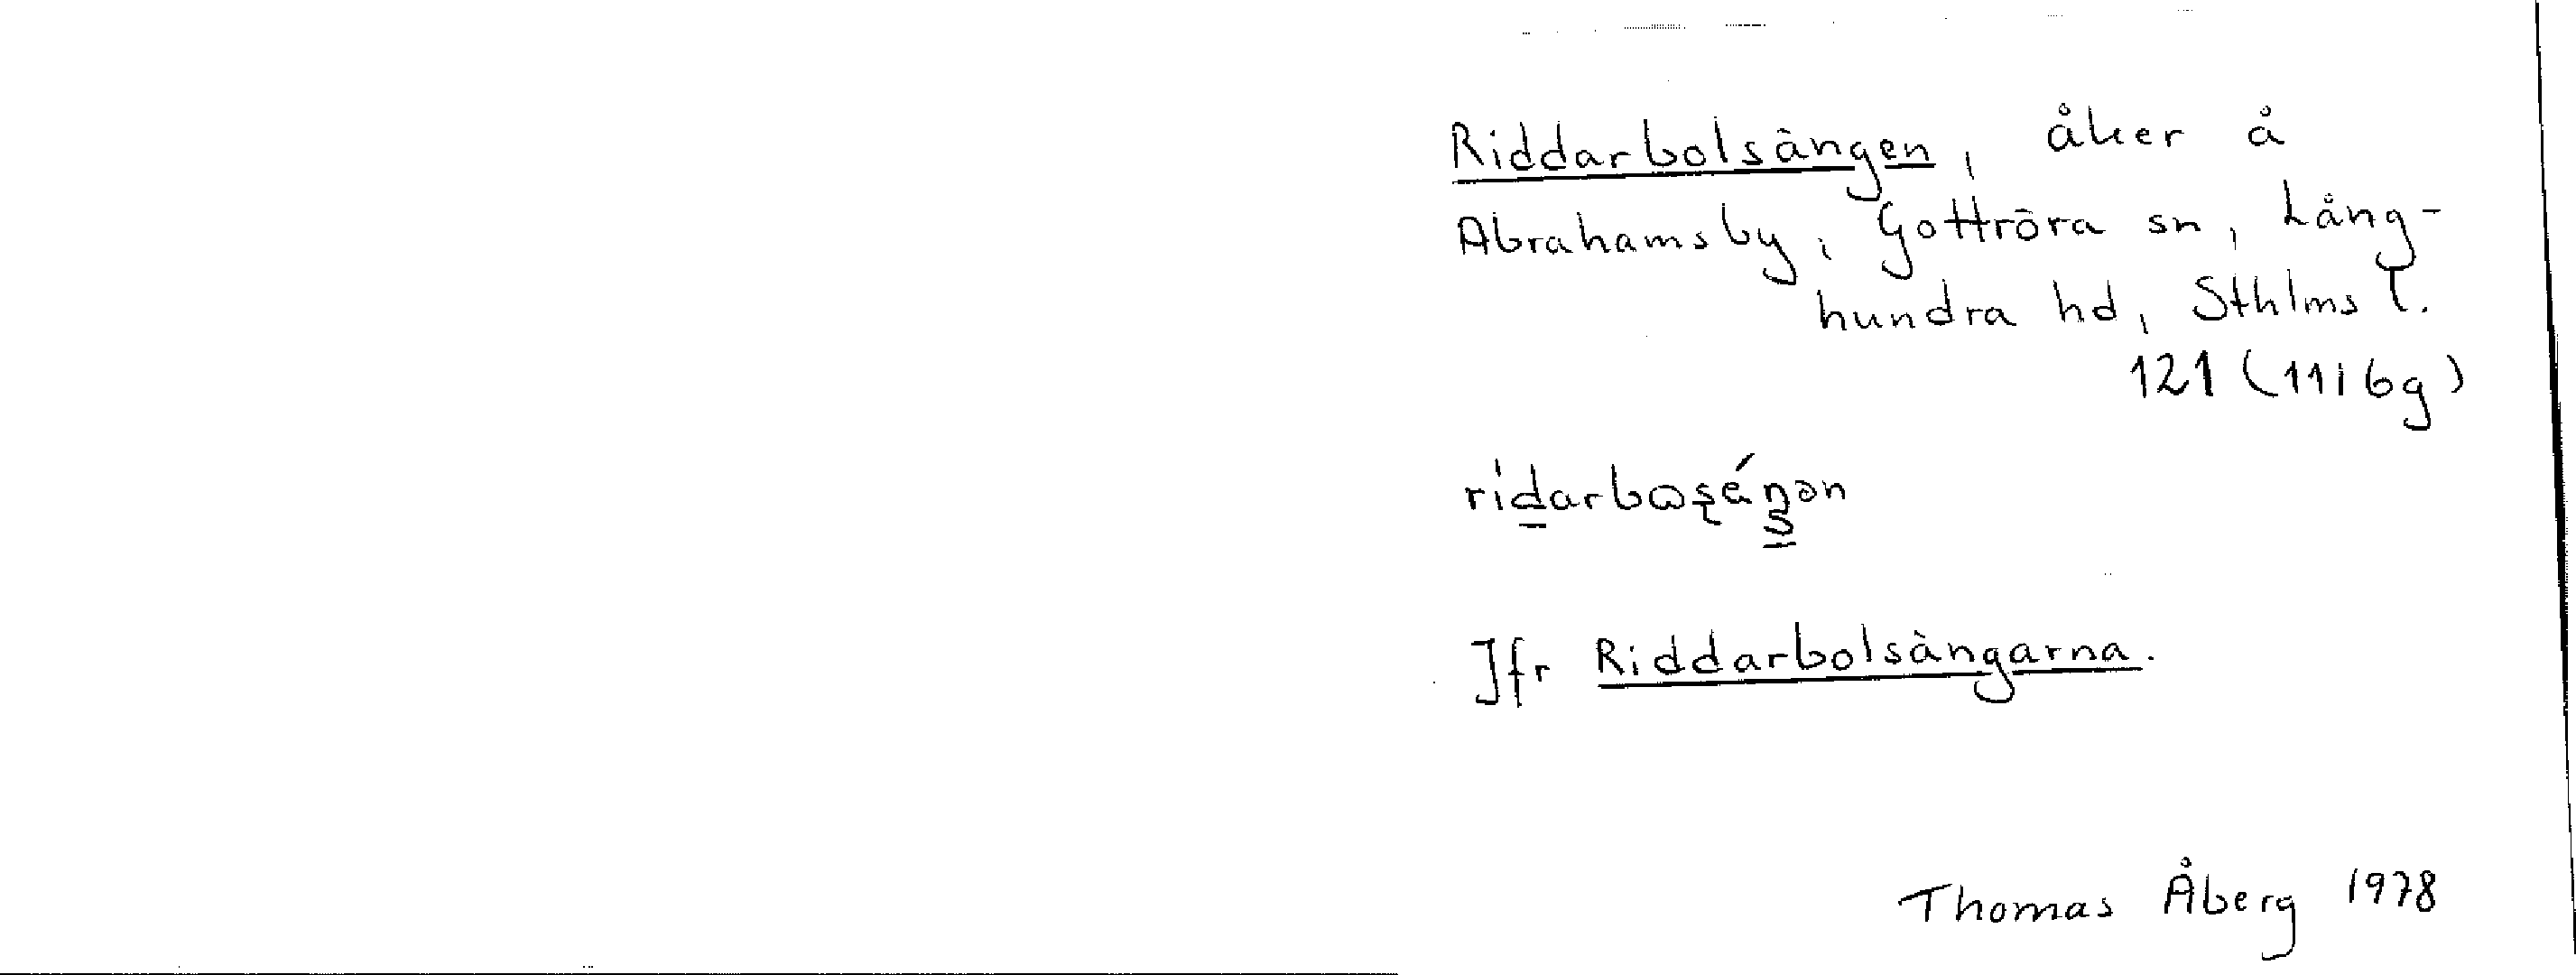 Riddarbolsängen, åker å
Abrahamsby, Gottröra sn, Lång-
hundra hd, Sthlms l.
121 (11i6g)
Jfr Riddarbolsängarna.
Thomas Åberg 1978